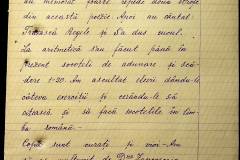 au memorat foarte repede două strofe
din această poezie. Apoi au cântat:
Trăiască Regele și Sa dus cucul.
La aritmetică s'au făcut până în
prezent socoteli de adunare și scă-
dere 1-20. Am ascultat elevii dându-le
câteva exerciții și cerându-le să
citească și să facă socotelile în lim-
ba română.-
Copiii sunt curați și